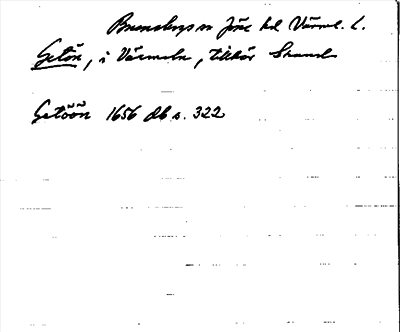 Brunskogs sn Jösse hd Värml. l.
Getön, i Värmeln, tillhör Strand
Getöön 1656 db s. 322